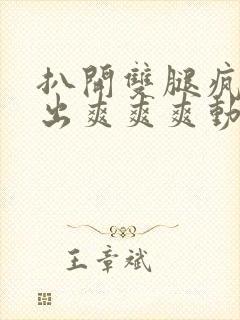 扒開雙腿瘋
出爽爽爽動
王章斌